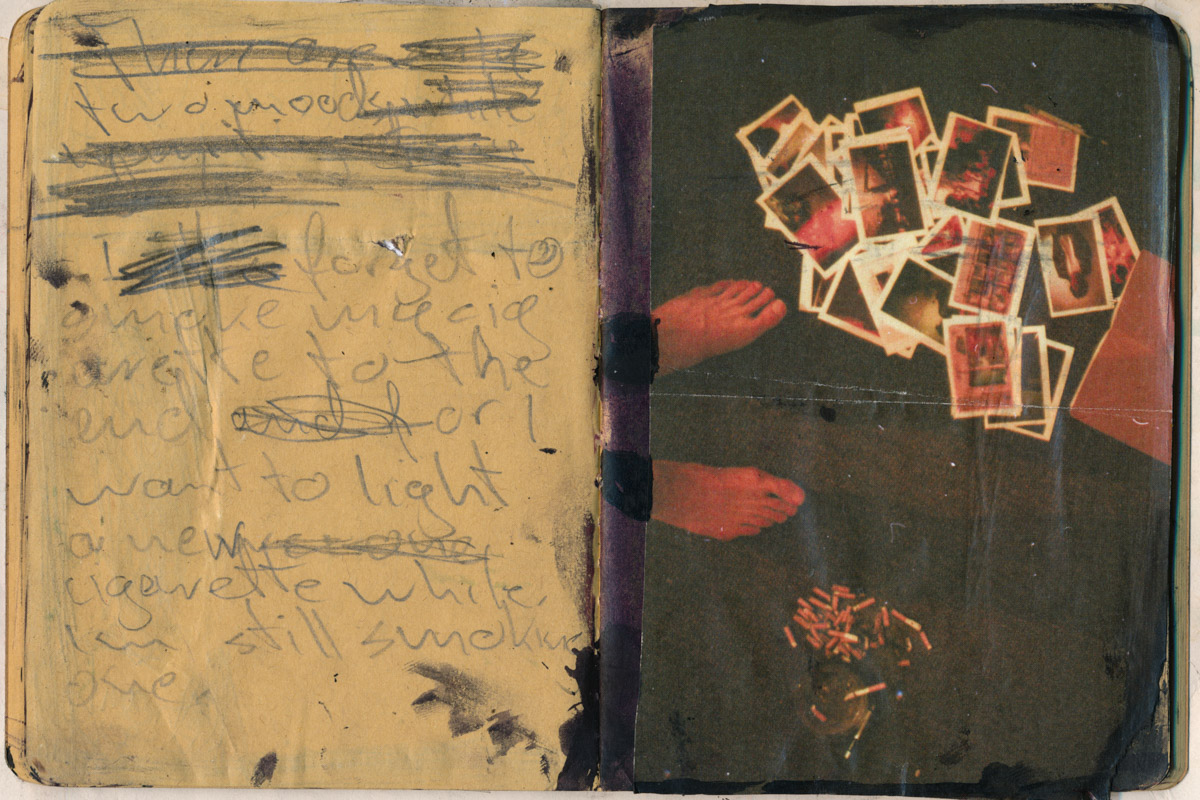 There are
two moods
I forget to
smoke my cig
arette to the
end and for I
want to light
a new
cigarette while
I'm still smoking
one.